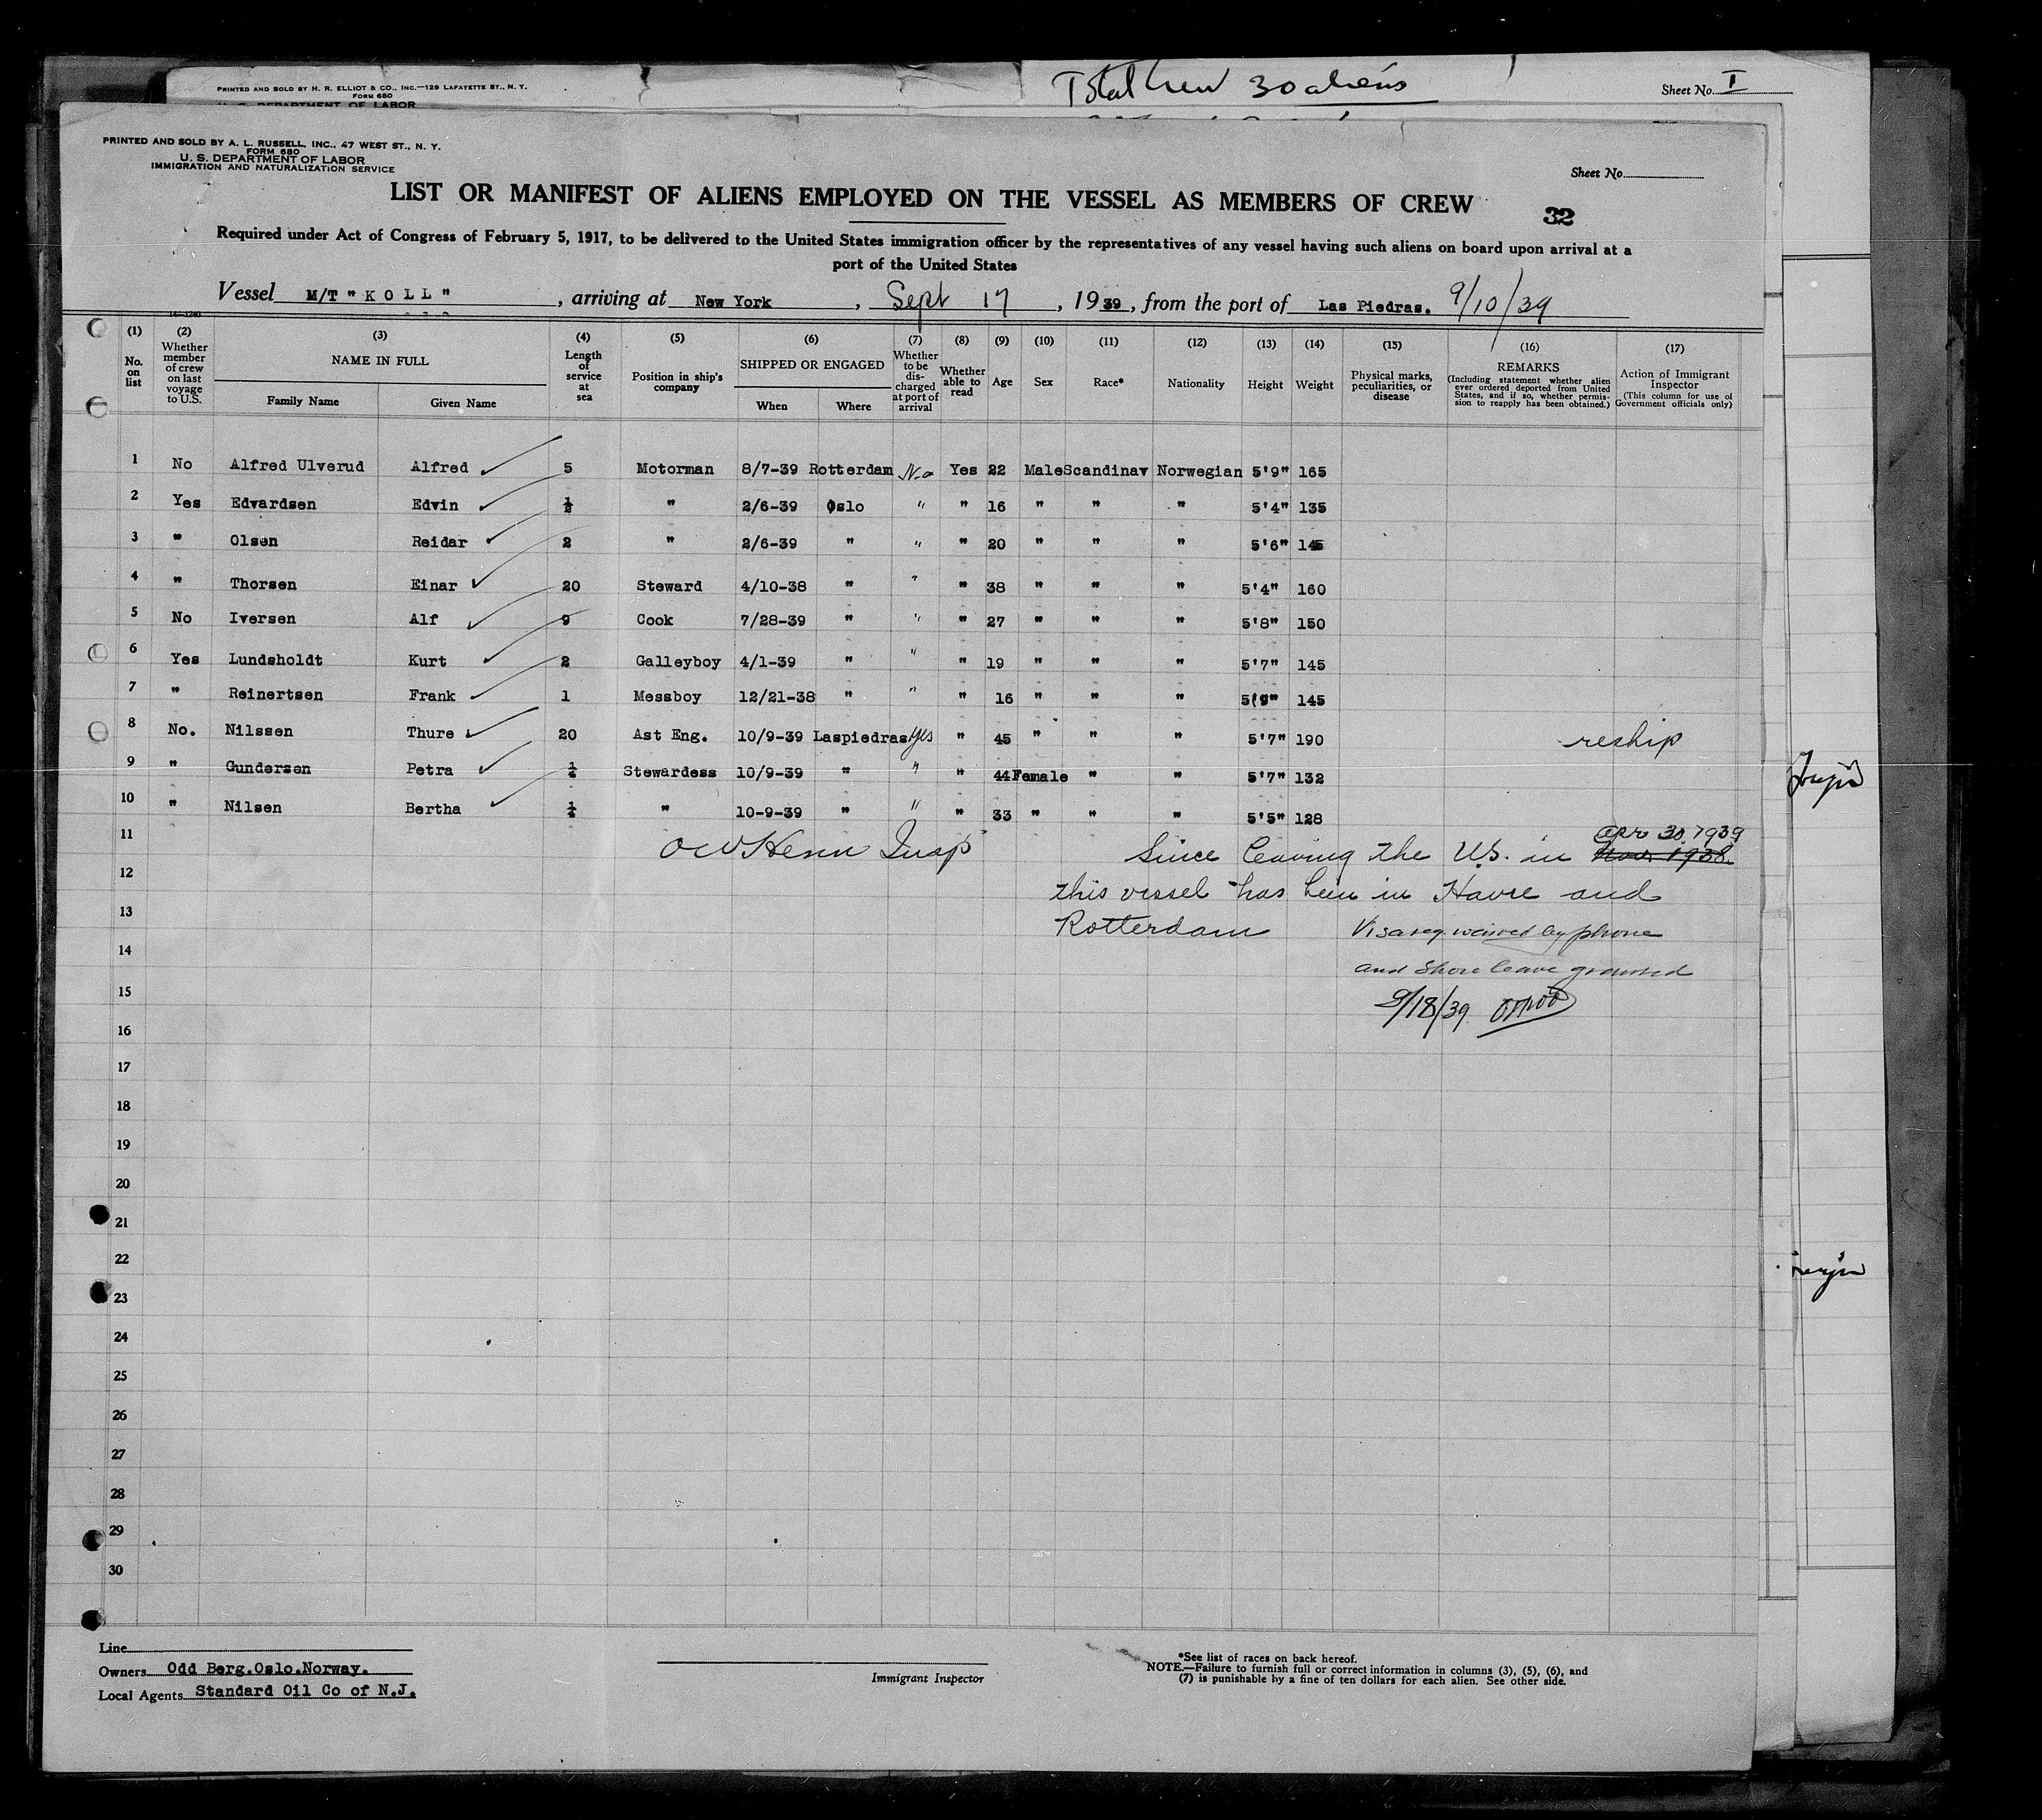 PRINTED AND SOLD BY H. R. ELLIOT & CO., INC.—129 LAFAYETTE ST., N. Y.
FORM 680
U. S. DEPARTMENT OF LABOR
Total Crew 30 aliens
Sheet No. I
PRINTED AND SOLD BY A. L. RUSSELL, INC., 47 WEST ST., N. Y.
FORM 680
U. S. DEPARTMENT OF LABOR
IMMIGRATION AND NATURALIZATION SERVICE
Sheet No.
LIST OR MANIFEST OF ALIENS EMPLOYED ON THE VESSEL AS MEMBERS OF CREW
32
Required under Act of Congress of February 5, 1917, to be delivered to the United States immigration officer by the representatives of any vessel having such aliens on board upon arrival at a
port of the United States
Vessel M/T "KOLL", arriving at New York, Sept 17, 1939, from the port of Las Piedras. 9/10/39
14—1240
(1) No. on list
(2) Whether member of crew on last voyage to U.S.
(3) NAME IN FULL
Family Name Given Name
(4) Length of service at sea
(5) Position in ship's company
(6) SHIPPED OR ENGAGED
When Where
(7) Whether to be discharged at port of arrival
(8) Whether able to read
(9) Age
(10) Sex
(11) Race*
(12) Nationality
(13) Height
(14) Weight
(15) Physical marks, peculiarities, or disease
(16) REMARKS
(Including statement whether alien ever ordered deported from United States, and if so, whether permission to reapply has been obtained.)
(17) Action of Immigrant Inspector
(This column for use of Government officials only)
1 No Alfred Ulverud Alfred 5 Motorman 8/7-39 Rotterdam No Yes 22 Male Scandinav Norwegian 5'9" 165
2 Yes Edvardsen Edvin ½ " 2/6-39 Oslo " " 16 " " " 5'4" 135
3 " Olsen Reidar 2 " 2/6-39 " " " 20 " " " 5'6" 145
4 " Thorsen Einar 20 Steward 4/10-38 " " " 38 " " " 5'4" 160
5 No Iversen Alf 9 Cook 7/28-39 " " " 27 " " " 5'8" 150
6 Yes Lundsholdt Kurt 2 Galleyboy 4/1-39 " " " 19 " " " 5'7" 145
7 " Reinertsen Frank 1 Messboy 12/21-38 " " " 16 " " " 5'9" 145
8 No. Nilssen Thure 20 Ast Eng. 10/9-39 Laspiedras Yes " 45 " " " 5'7" 190 reship
9 " Gundersen Petra ¼ Stewardess 10/9-39 " " " 44 Female " " 5'7" 132
10 " Nilsen Bertha ¼ " 10-9-39 " " " 33 " " " 5'5" 128
11 Insp Since leaving the U.S. in Nov. 1938 Apr 30, 1939
12 this vessel has been in Havre and
13 Rotterdam Visa req. waived by phone
14 and shore leave granted
15 9/18/39
16
17
18
19
20
21
22
23
24
25
26
27
28
29
30
Line
Owners Odd Berg.Oslo.Norway.
Local Agents Standard Oil Co of N.J.
Immigrant Inspector
*See list of races on back hereof.
NOTE.—Failure to furnish full or correct information in columns (3), (5), (6), and
(7) is punishable by a fine of ten dollars for each alien. See other side.